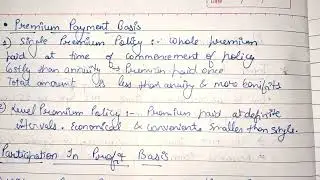 • Premium Payment Basis
1) Single Premium Policy :- Whole premium
paid at time of commencement of policy
Costly than annuity → Premium paid once
Total amount is less than annuity & more benifits
2) Level Premium Policy :- Premium paid at definite
intervals. Economical & convenient. Smaller than single.
Participation In Profit Basis